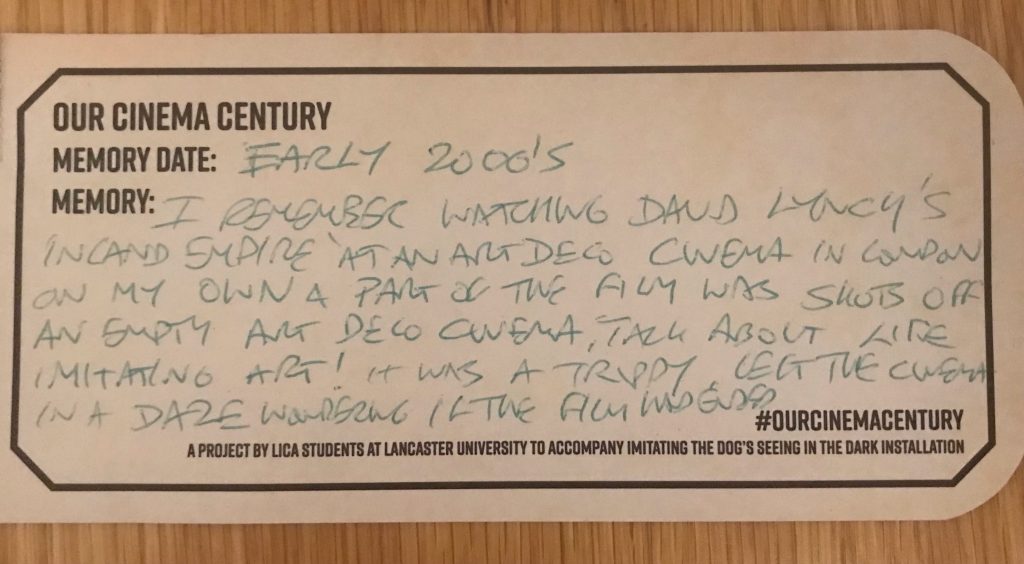 OUR CINEMA CENTURY
MEMORY DATE: EARLY 2000'S
MEMORY: I REMEMBER WATCHING DAVID LYNCY'S
'INLAND EMPIRE' AT AN ART DECO CINEMA IN LONDON
ON MY OWN & PART OF THE FILM WAS SHOTS OFF
AN EMPTY ART DECO CINEMA, TALK ABOUT LIFE
IMITATING ART! IT WAS A TRIPPY LEFT THE CINEMA
IN A DAZE WONDERING IF THE FILM HAD ENDED
#OURCINEMACENTURY
A PROJECT BY LICA STUDENTS AT LANCASTER UNIVERSITY TO ACCOMPANY IMITATING THE DOG'S SEEING IN THE DARK INSTALLATION